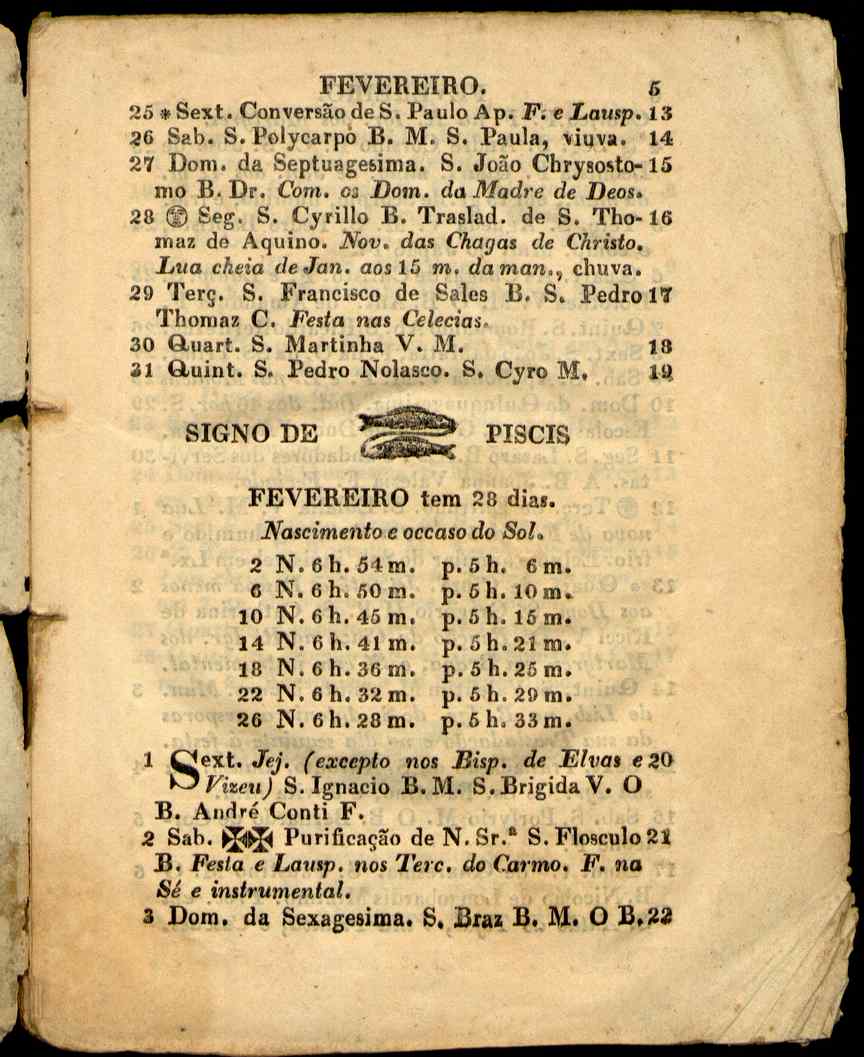 FEVEREIRO. 5
25 * Sext. Conversão de S. Paulo Ap. F. e Lausp. 13
26 Sab. S. Polycarpo B. M. S. Paula, viuva. 14
27 Dom. da Septuagesima. S. João Chrysosto- 15
mo B. Dr. Com. os Dom. da Madre de Deos.
28 Seg. S. Cyrillo B. Traslad. de S. Tho- 16
maz de Aquino. Nov. das Chagas de Christo.
Lua cheia de Jan. aos 15 m. da man., chuva.
29 Terç. S. Francisco de Sales B. S. Pedro 17
Thomaz C. Festa nas Celecias.
30 Quart. S. Martinha V. M. 18
31 Quint. S. Pedro Nolasco. S. Cyro M. 19
SIGNO DE PISCIS
FEVEREIRO tem 28 dias.
Nascimento e occaso do Sol.
2 N. 6 h. 54 m. p. 5 h. 6 m.
6 N. 6 h. 50 m. p. 5 h. 10 m.
10 N. 6 h. 45 m. p. 5 h. 15 m.
14 N. 6 h. 41 m. p. 5 h. 21 m.
18 N. 6 h. 36 m. p. 5 h. 25 m.
22 N. 6 h. 32 m. p. 5 h. 29 m.
26 N. 6 h. 28 m. p. 5 h. 33 m.
1 Sext. Jej. (excepto nos Bisp. de Elvas e 20
Vizeu) S. Ignacio B. M. S. Brigida V. O
B. André Conti F.
2 Sab. ✠✠ Purificação de N. Sr.ª S. Flosculo 21
B. Festa e Lausp. nos Terc. do Carmo. F. na
Sé e instrumental.
3 Dom. da Sexagesima. S. Braz B. M. O B. 22